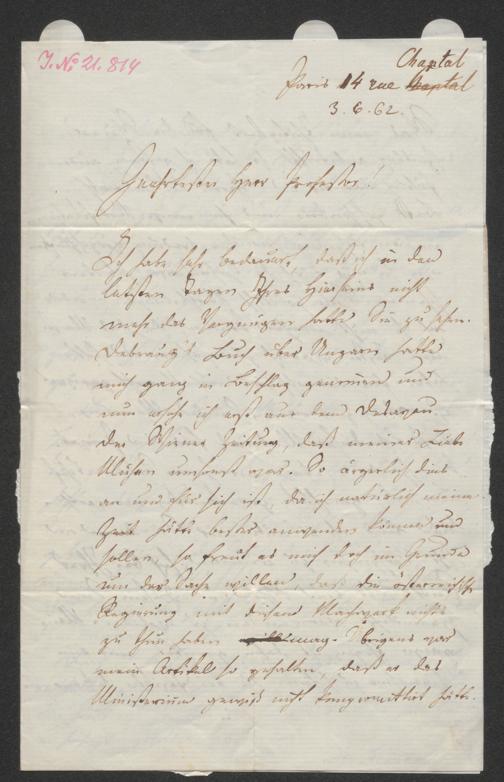 J. No 21.814
Chaptal
Paris 14 rue Chaptal
3. 6. 62.
Geehrtester Herr Professor!
Ich habe sehr bedauert, daß ich in den
letzten Tagen Ihres Hierseins nicht
mehr das Vergnügen hatte Sie zu sehen.
Debrauz's Buch über Ungarn hatte
mich ganz in Beschlag genommen und
nun ersehe ich erst aus dem Desaveu
der Wiener Zeitung, daß meine Liebe
Mühen umsonst war. So ärgerlich dies
an und für sich ist, da ich natürlich meine
Zeit hätte besser anwenden können und
sollen, so freut es mich doch im Grunde
um der Sache willen, daß die österreichische
Regierung mit diesem Machwerk nichts
zu thun haben mag. Übrigens war
mein Artikel so gehalten, daß er das
Ministerium gewiß nicht kompromittirt hätte.